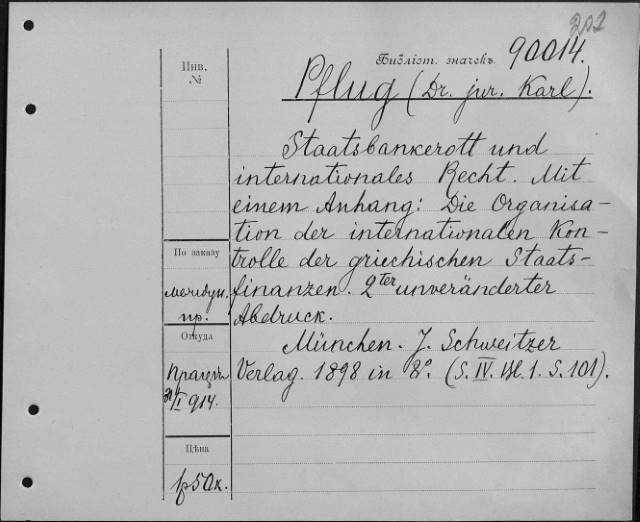 202
Библіот. значекъ 90014.
Инв.
№
Pflug (Dr. jur. Karl).
Staatsbankerott und
internationales Recht. Mit
einem Anhang: Die Organisa-
tion der internationalen Kon-
trolle der griechischen Staats-
finanzen. 2ter unveränderter
Abdruck.
München. J. Schweitzer
Verlag. 1898 in 8º. (S. IV. Bl. 1. S. 101).
По заказу
пр.
Откуда
I 914.
Цѣна
50к.